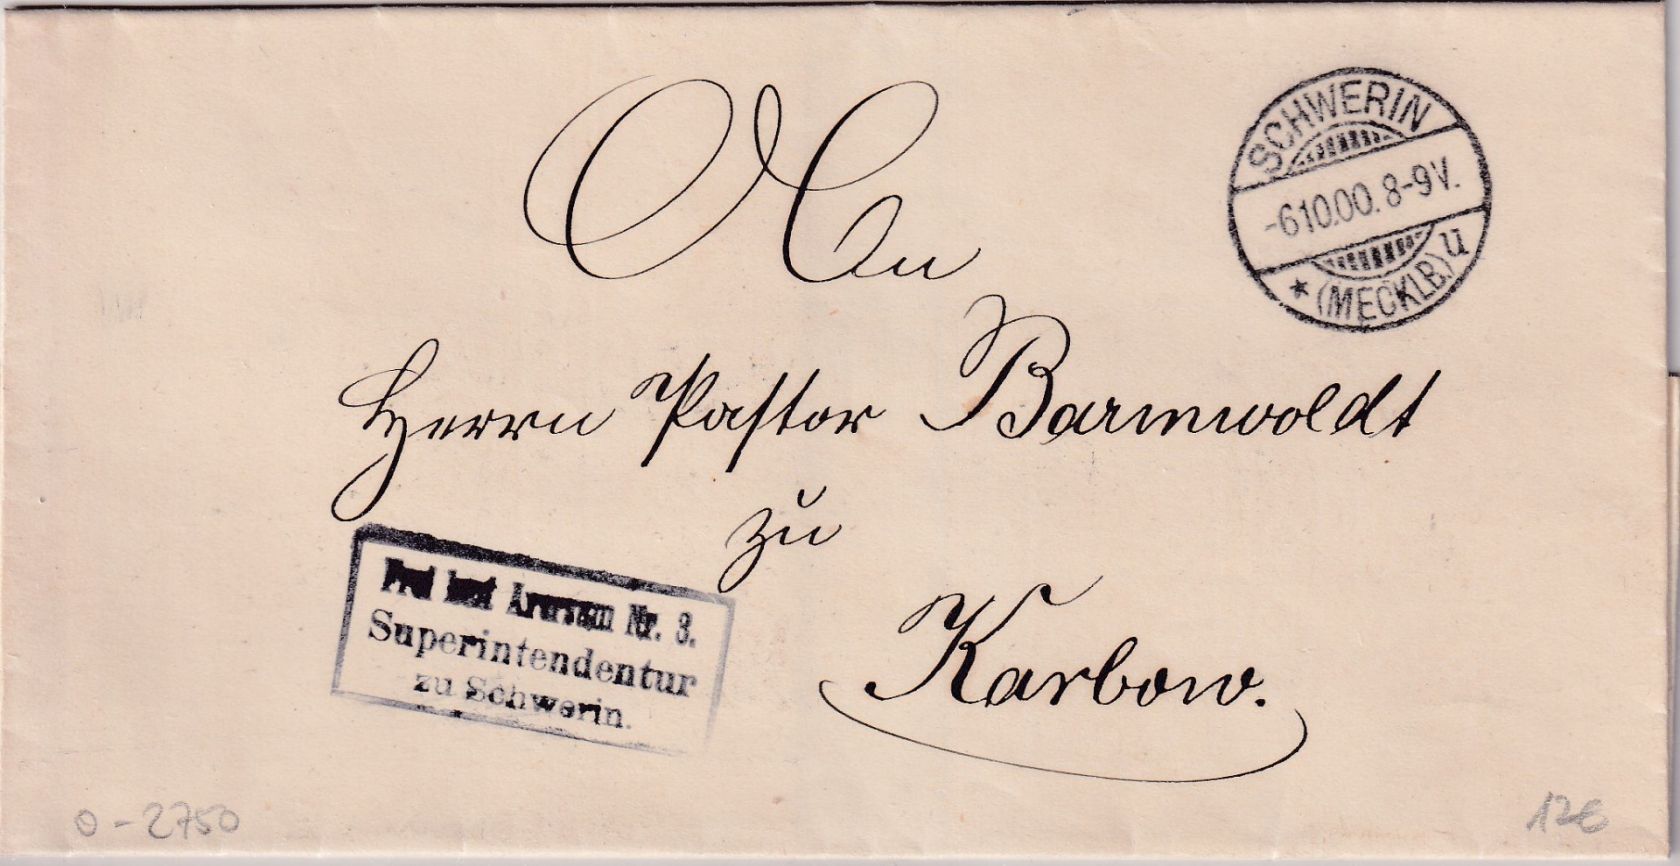 An
Herrn Pastor Barnewoldt
zu
Karbow.
SCHWERIN
-6.10.00. 8-9V.
* (MECKLB.) u
Frei laut Aversum Nr. 3.
Superintendentur
zu Schwerin.
0-2750
12€